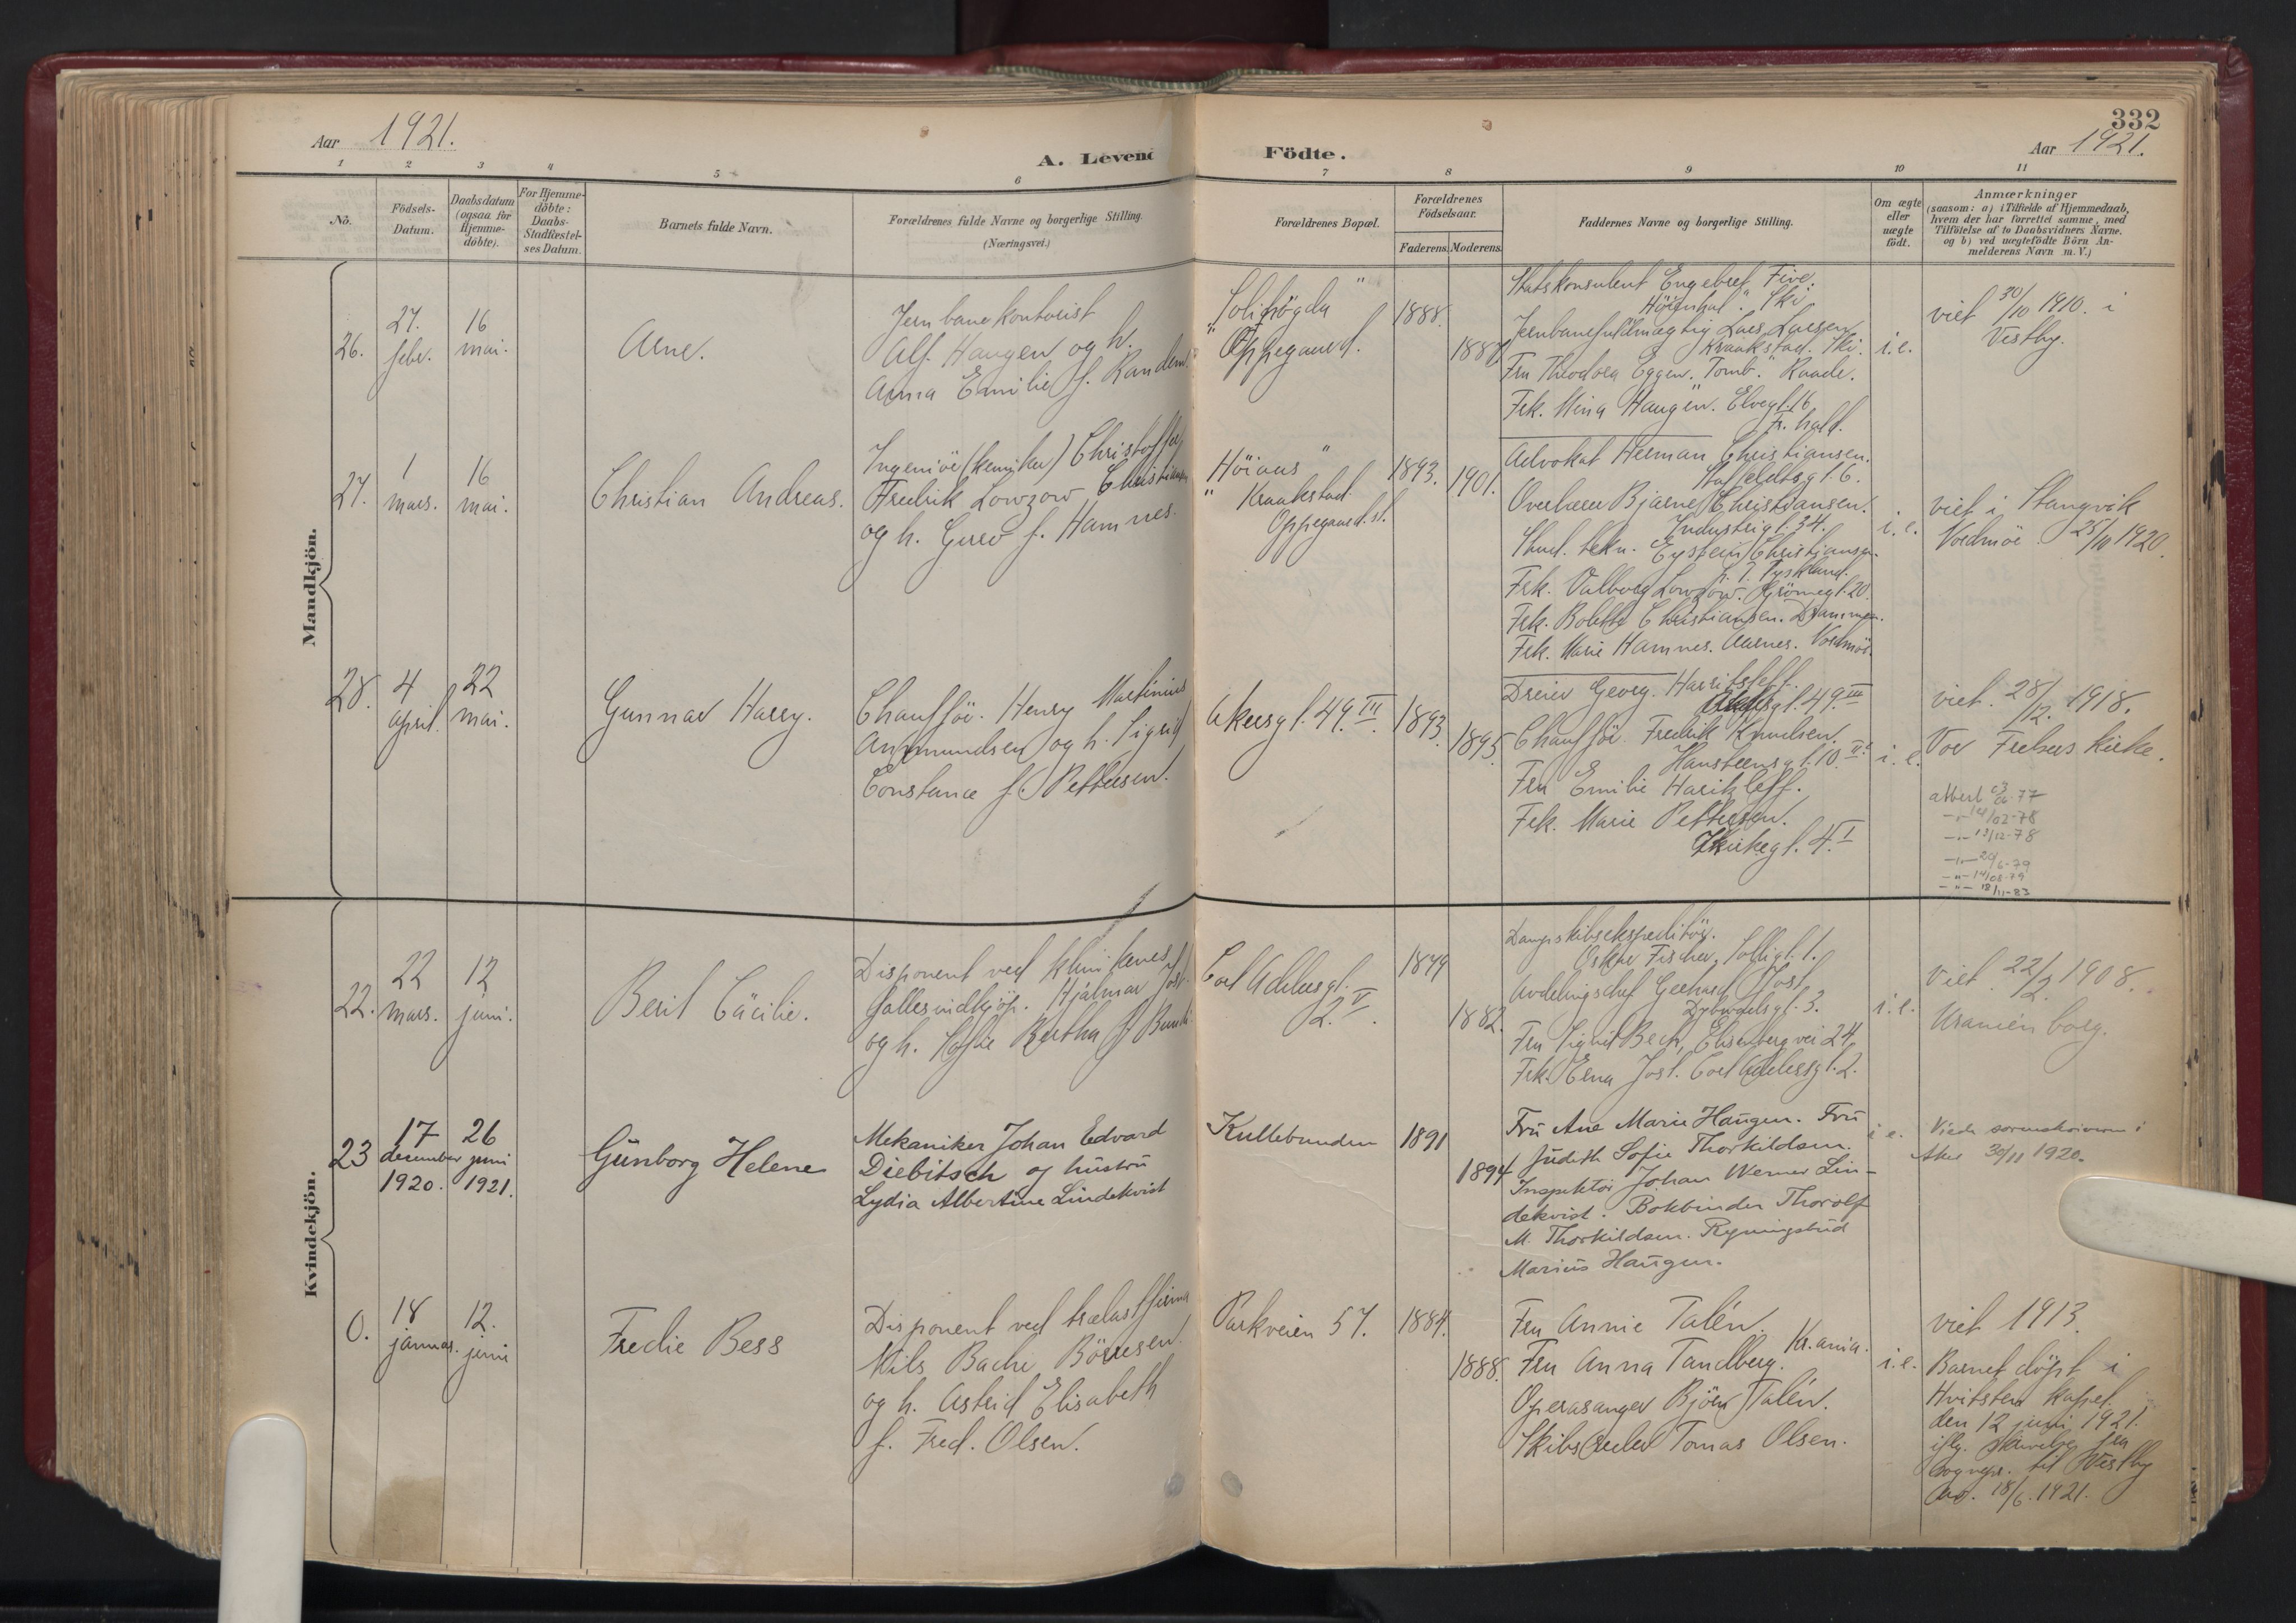 332
Aar 1921.
Aar 1921.
A. Levend
Födte.
1 2 3 4 5 6 7 8 9 10 11
No.
Födsels-
Datum.
Daabsdatum
(ogsaa for
Hjemme-
döbte).
For Hjemme-
döbte:
Daabs-
Stadfestel-
ses Datum.
Barnets fulde Navn.
Forældrenes fulde Navne og borgerlige Stilling.
(Næringsvei.)
Forældrenes Bopæl.
Forældrenes
Födselsaar.
Faderens. Moderens.
Faddernes Navne og borgerlige Stilling.
Om ægte
eller
uægte
födt.
Anmærkninger
(saasom: a) i Tilfælde af Hjemmedaab,
hvem der har forrettet samme, med
Tilföielse af to Daabsvidners Navne.
og b) ved uægtefödte Börn An-
melderens Navn m. V.)
Mandkjön.
26.
27.
febr.
16
mai.
Arne.
Jernbanekontorist
Alf. Haugen og h.
Anna Emilie f. Randem
"Solihögda"
Oppegaard.
1888.
1887
Statskonsulent Engebret Five.
"Höienhal". Ski
Jernbanefuldmægtig Lars Larsen
Kraakstad. Ski.
Fru Theodora Eggen. "Tomb." Raade.
Frk. Mina Haugen. Elvegt. 16
Fr.hald.
i.e.
viet 30/10 1910. i
Vestby.
27.
1
mars.
16
mai.
Christian Andreas.
Ingeniör (kemiker) Christoffer
Fredrik Lowzow Christiansen
og h. Guro f. Hamnes.
"Höiaas"
Kraakstad
Oppegaard. st.
1893.
1901.
Advokat Herman Christiansen.
Staffeldtsgt. 6.
Overlærer Bjarne Christiansen.
Industrigt. 34.
Stud. tekn. Eystein Christiansen.
Tyskland.
Frk. Valborg Lowzow. 20.
Frk. Bolette Christiansen. Drammen.
Frk. Marie Hamnes. Aasnes. Nordmör.
i.e.
viet i Stangvik
Nordmör 25/10 1920.
28.
4
april.
22
mai.
Gunnar Harry.
Chaufför. Henry Martinius
Ammundsen og h. Sigrid
Constance f. Pettersen.
Akersgt. 49. III
1893.
1895.
Dreier Georg. Haritsleff.
Akersgt. 49. III
Chaufför Fredrik Knudsen.
Hansteensgt. 10. II
Fru Emilie Haritzleff.
Frk. Marie Pettersen.
gt. 4. I
i.e.
viet. 28/12. 1918.
Vor Frelsers kirke.
attest 77
-"- 14/02-78
-"- 13/12-78
-"- 29/6-79
-"- 14/08-79
-"- 18/11-83
Kvindekjön.
22.
22
mars.
12
juni.
Berit Cäcilie.
Disponent ved klinikernes
fællesindkjöp. Hjalmar Jost
og h. Sofie Bertha f. Bunde
Cort Adelersgt.
2. V.
1879
1882.
Dampskibsekspeditör.
Oskar Fischer, Solligt. 1.
Avdelingschef Gerhard Jost
Dybwadsgt. 3.
Fru Sigrid Bech, Elisenbergvei 24.
Frk. Erna Jost. Cort Adelersgt. 2.
i.e.
Viet. 22/2. 1908.
Uranienborg.
23
17
desember
1920.
26
juni
1921.
Gunborg Helene
Mekaniker Johan Edvard
Diebitsch og hustru
Lydia Albertine Lindekvist
Kullebunden
1891
1894
Fru Ane Marie Haugen. Fru
Judith Sofie Thorkildsen.
Inspektör Johan Werner Lin-
dekvist. Bokbinder Thorolf
M. Thorkildsen. Regningsbud
Marius Haugen.
i.e.
Viede sorenskriveren i
Aker 30/11 1920.
0.
18
januar.
12.
juni
Fredie Bess
Disponent ved trælastfirma
Nils Bache Börresen
og h. Astrid Elisabeth
f. Fred. Olsen.
Parkveien 57.
1884.
1888.
Fru Annie Talén.
Fru Anna Tandberg. Kr.ania.
Operasanger Björn Talén.
Skibsreder Tomas Olsen.
i.e.
viet 1913.
Barnet döpt i
Hvitsten kapel
den 12 juni 1921.
iflg. skrivelse fra
Sognepr. til Vestby
18/6. 1921.